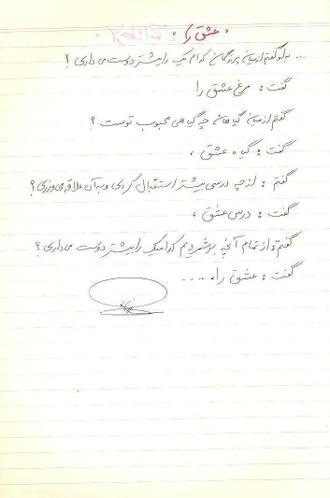 عشق را
... به او گفتم از میان پرندگان کدام یک را بیشتر دوست می داری؟
گفت: مرغ عشق را
گفتم از میان گیاهان چه گیاهی محبوب توست؟
گفت: گیاه عشق.
گفتم: از چه درسی بیشتر استقبال کردی و به آن علاقه می ورزی؟
گفت: درس عشق.
گفتم: از تمام آنچه برشمردیم کدامیک را بیشتر دوست می داری؟
گفت: عشق را. ....